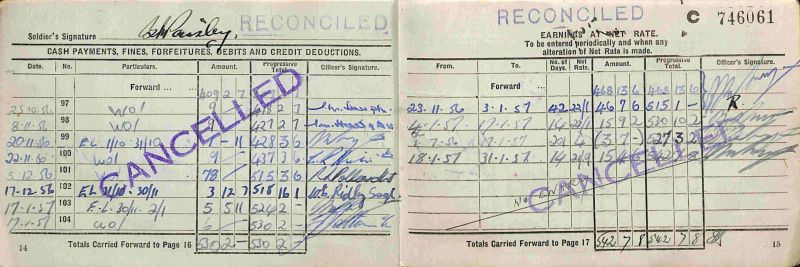 RECONCILED
Soldier's Signature
CASH PAYMENTS, FINES, FORFEITURES, DEBITS AND CREDIT DEDUCTIONS.
Date. No. Particulars. Amount. Progressive Total. Officer's Signature.
Forward ... 409 2 7
25.10.56 97 WO1 9 418 2 7
8.11.56 98 WO1 427 2 7
20.11.56 99 E.L 1/10 - 31/10 11 428 3 6
22.11.56 100 WO1 9 437 3 6
5.12.56 101 WO1 78 515 3 6
17.12.56 102 E.L 31/10 - 30/11 3 12 7 518 16 1
17.1.57 103 E.L. 30/11 - 2/1 5 5 11 524 2 -
17.1.57 104 WO1 6 - 530 2 -
14 Totals Carried Forward to Page 16 530 2 - 530 2 -
CANCELLED
RECONCILED
C 746061
EARNINGS AT NET RATE.
To be entered periodically and when any
alteration of Net Rate is made.
From. To. No. of Days. Net Rate. Amount. Progressive Total. Officer's Signature.
Forward ... 468 13 6 468 13 6
23.11.56 3.1.57 42 22/1 46 7 6 515 1 -
4.1.57 17.1.57 14 22/1 15 9 2 530 10 2
56 17.1.57 (3 7 - 527 3 2
18.1.57 31.1.57 14 15 4 542
Totals Carried Forward to Page 17 542 7 8 542 7 8 15
CANCELLED